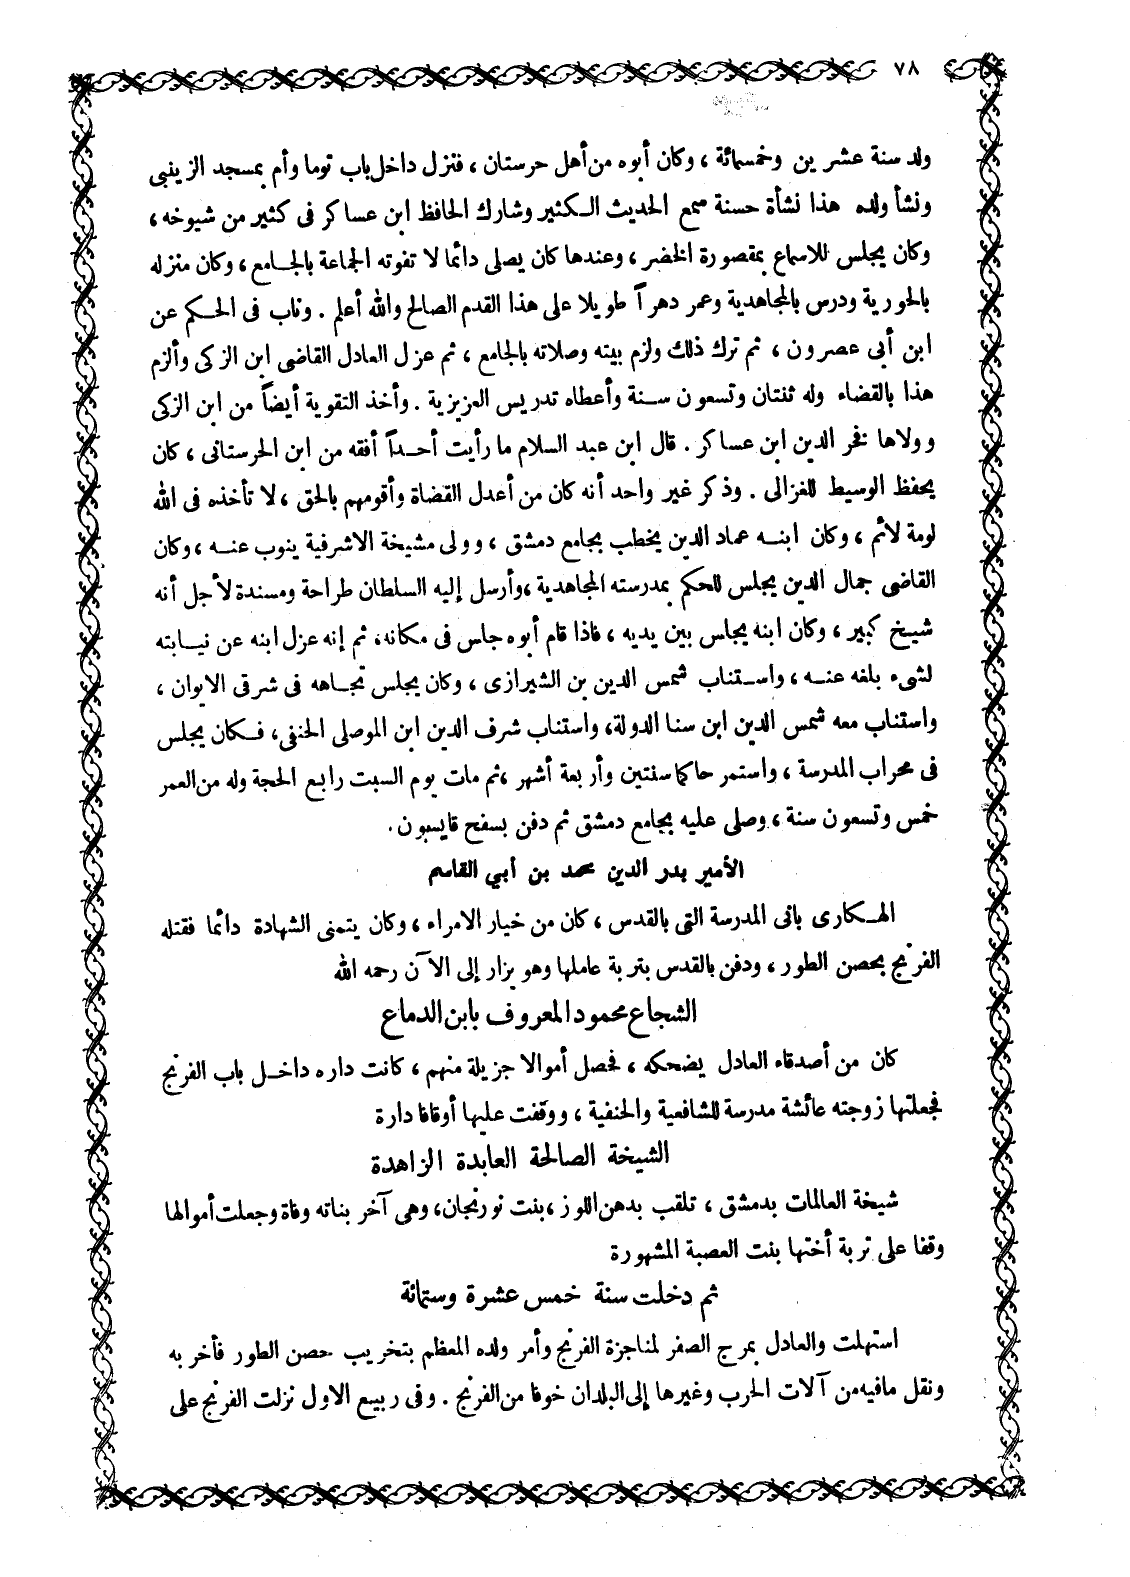 ٧٨
ولد سنة عشرين وخمسمائة ، وكان أبوه من أهل حرستان ، فنزل داخل باب توما وأم بمسجد الزينبى
ونشأ ولده هذا نشأة حسنة سمع الحديث الـكثير وشارك الحافظ ابن عساكر فى كثير من شيوخه ،
وكان يجلس للاسماع بمقصورة الخضر ، وعندها كان يصلى دائما لا تفوته الجماعة بالجـامع ، وكان منزله
بالحورية ودرس بالمجاهدية وعمر دهراً طويلا على هذا القدم الصالح والله أعلم . وناب فى الحـكم عن
ابن أبى عصرون ، ثم ترك ذلك ولزم بيته وصلاته بالجامع ، ثم عزل العادل القاضى ابن الزكى وألزم
هذا بالقضاء وله ثنتان وتسعون سـنة وأعطاه تدريس العزيزية . وأخذ التقوية أيضاً من ابن الزكى
وولاها فخر الدين ابن عساكر . قال ابن عبد السلام ما رأيت أحـداً أفقه من ابن الحرستانى ، كان
يحفظ الوسيط للغزالى . وذكر غير واحد أنه كان من أعدل القضاة وأقومهم بالحق ، لا تأخذه فى الله
لومة لائم ، وكان ابنـه عماد الدين يخطب بجامع دمشق ، وولى مشيخة الاشرفية ينوب عنـه ، وكان
القاضى جمال الدين يجلس للحكم بمدرسته المجاهدية ، وأرسل إليه السلطان طراحة ومسندة لأجل أنه
شيـخ كبير ، وكان ابنه يجلس بين يديه ، فاذا قام أبوه جلس فى مكانه، ثم إنه عزل ابنه عن نيـابته
لشىء بلغه عنـه ، واسـتناب شمس الدين بن الشيرازى ، وكان يجلس تجـاهه فى شرقى الايوان ،
واستناب معه شمس الدين ابن سنا الدولة، واستناب شرف الدين ابن الموصلى الحنفى، فـكان يجلس
فى محراب المدرسة ، واستمر حاكما سنتين وأربعة أشهر ، ثم مات يوم السبت رابـع الحجة وله من العمر
خمس وتسعون سنة ، وصلى عليه بجامع دمشق ثم دفن بسفح قايسبون .
الأمير بدر الدين محمد بن أبي القاسم
الهـكارى بانى المدرسة التى بالقدس ، كان من خيار الامراء ، وكان يتمنى الشهادة دائما فقتله
الفرنج بحصن الطور ، ودفن بالقدس بتربة عاملها وهو يزار إلى الآن رحمه الله
الشجاع محمود المعروف بابن الدماع
كان من أصدقاء العادل يضحكه ، فحصل أموالا جزيلة منهم ، كانت داره داخـل باب الفرنج
فجعلتها زوجته عائشة مدرسة للشافعية والحنفية ، ووقفت عليها أوقافا دارة
الشيخة الصالحة العابدة الزاهدة
شيخة العالمات بدمشق ، تلقب بدهن اللوز ، بنت نورنجان، وهى آخر بناته وفاة وجعلت أموالها
وقفا على تربة أختها بنت العصبة المشهورة
ثم دخلت سنة خمس عشرة وستمائة
استهلت والعادل بمرج الصفر لمناجزة الفرنج وأمر ولده المعظم بتخريب حصن الطور فأخربه
ونقل مافيه من آلات الحرب وغيرها إلى البلدان خوفا من الفرنج . وفى ربيع الاول نزلت الفرنج على